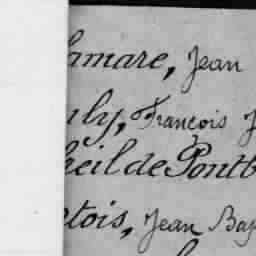 lamare, Jean
uly, François J
heil de Pontb
etois, Jean Bap